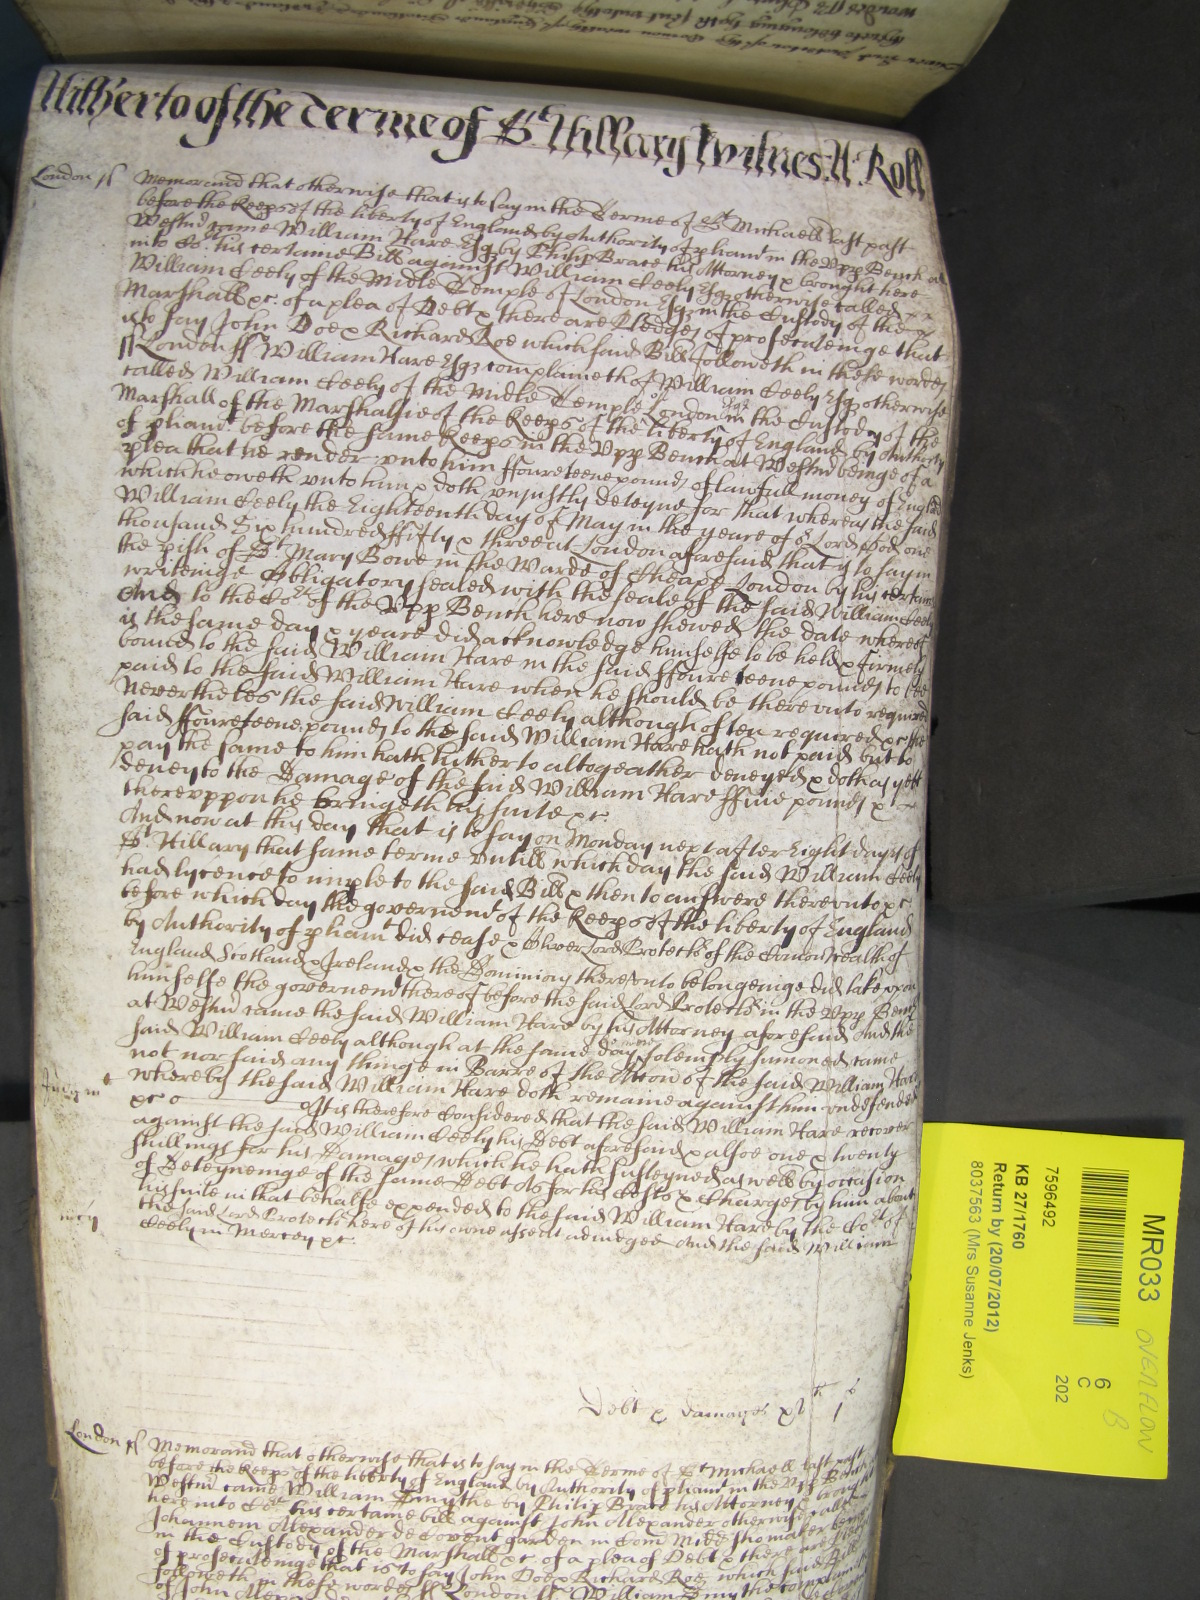 Hitherto of the Terme of St Hillary Witnes: H: Roll
London ss
Memorand that otherwise that is to say in the Terme of St Michaell last past
before the Keeps of the liberty of England by Authority of pliamt in the Upp Bench at
Westmr came William Hare Esqr by Philip Brace his Attorney & brought here
into Cort his certaine Bill against William Ceely Esqr otherwise called
William Ceely of the Middle Temple of London Esqr in the Custody of the
Marshall &c. of a plea of Debt & there are Pledges of prosecuteinge that
is to say John Doe & Richard Roe which said Bill followeth in these wordes
ss London ss William Hare Esqr complaineth of William Ceely Esqr otherwise
called William Ceely of the Middle Temple of London Esqr in the Custody of the
Marshall of the Marshalsie of the Keeps of the liberty of England by Authority
of pliamt before the same Keeps in the Upp Bench at Westmr beinge of a
plea that he render unto him ffoureteene pounds of lawfull money of England
which he oweth unto him & doth unjustly deteyne for that whereas the said
William Ceely the Eighteenth day of May in the yeare of or Lord God one
thousand Six hundred ffifty & three at London aforesaid that is to say in
the pish of St Mary Bowe in the Warde of Cheape London by his certaine
writeinge Obligatory sealed with the seale of the said William Ceely
And to the Cort of the Upp Bench here now shewed the date whereof
is the same day & yeare did acknowledge himselfe to be held & firmely
bound to the said William Hare in the said ffoureteene pounds to bee
paid to the said William Hare when he should be thereunto required
Neverthelес the said William Ceely although often required &c the
said ffoureteene pounds to the said William Hare hath not paid but to
pay the same to him hath hitherto altogeather deneyed & doth as yett
deney to the Damage of the said William Hare ffive pounds &
thereuppon he bringeth his suite &c.
And now at this day that is to say on Monday next after Eight dayes of
St Hillary that same terme untill which day the said William Ceely
had lycence to imple to the said Bill & then to answere thereunto &c
before which day the governemt of the Keeps of the liberty of England
by Authority of pliamt did cease & Oliver Lord Protector of the Comonwealth of
England Scotland & Ireland & the Dominions thereunto belongeinge did take upon
himselfe the governemt thereof before the said Lord Protector in the Upp Bench
at Westmr came the said William Hare by his Attorney aforesaid And the
said William Ceely although at the same day solemply sumoned came
not nor said any thinge in Barre of the Accon of the said William Hare
whereby the said William Hare doth remaine against him undefended
&c
Judgmt
It is therefore Considered that the said William Hare recover
against the said William Ceely his Debt aforesaid & alsoe one & twenty
shillings for his Damages which he hath susteyned as well by occasion
of Deteyneinge of the same Debt As for his Costs & Charges by him about
his suite in that behalfe expended to the said William Hare by the Cort of
the said Lord Protector here of his owne assent adiudged And the said William
mcy
Ceely in Mercy &c
Debt & damages
London ss
Memorand that otherwise that is to say in the Terme of St Michaell last past
before the Keeps of the liberty of England by Authority of pliamt in the Upp Bench at
Westmr came William Smythe by Philip Brace his Attorney & brought
here into Cort his certaine bill against John Alexander otherwise called
Johannem Alexander de Covent garden in Com Midd shomaker
in the Custody of the Marshall &c of a plea of Debt & there are
of prosecuteinge that is to say John Doe & Richard Roe which said Bill
followeth in these wordes ss London ss William Smythe complaineth
of John
MR033
OVERFLOW
7596492
KB 27/1760
Return by (20/07/2012)
8037563 (Mrs Susanne Jenks)
6
C
202
B